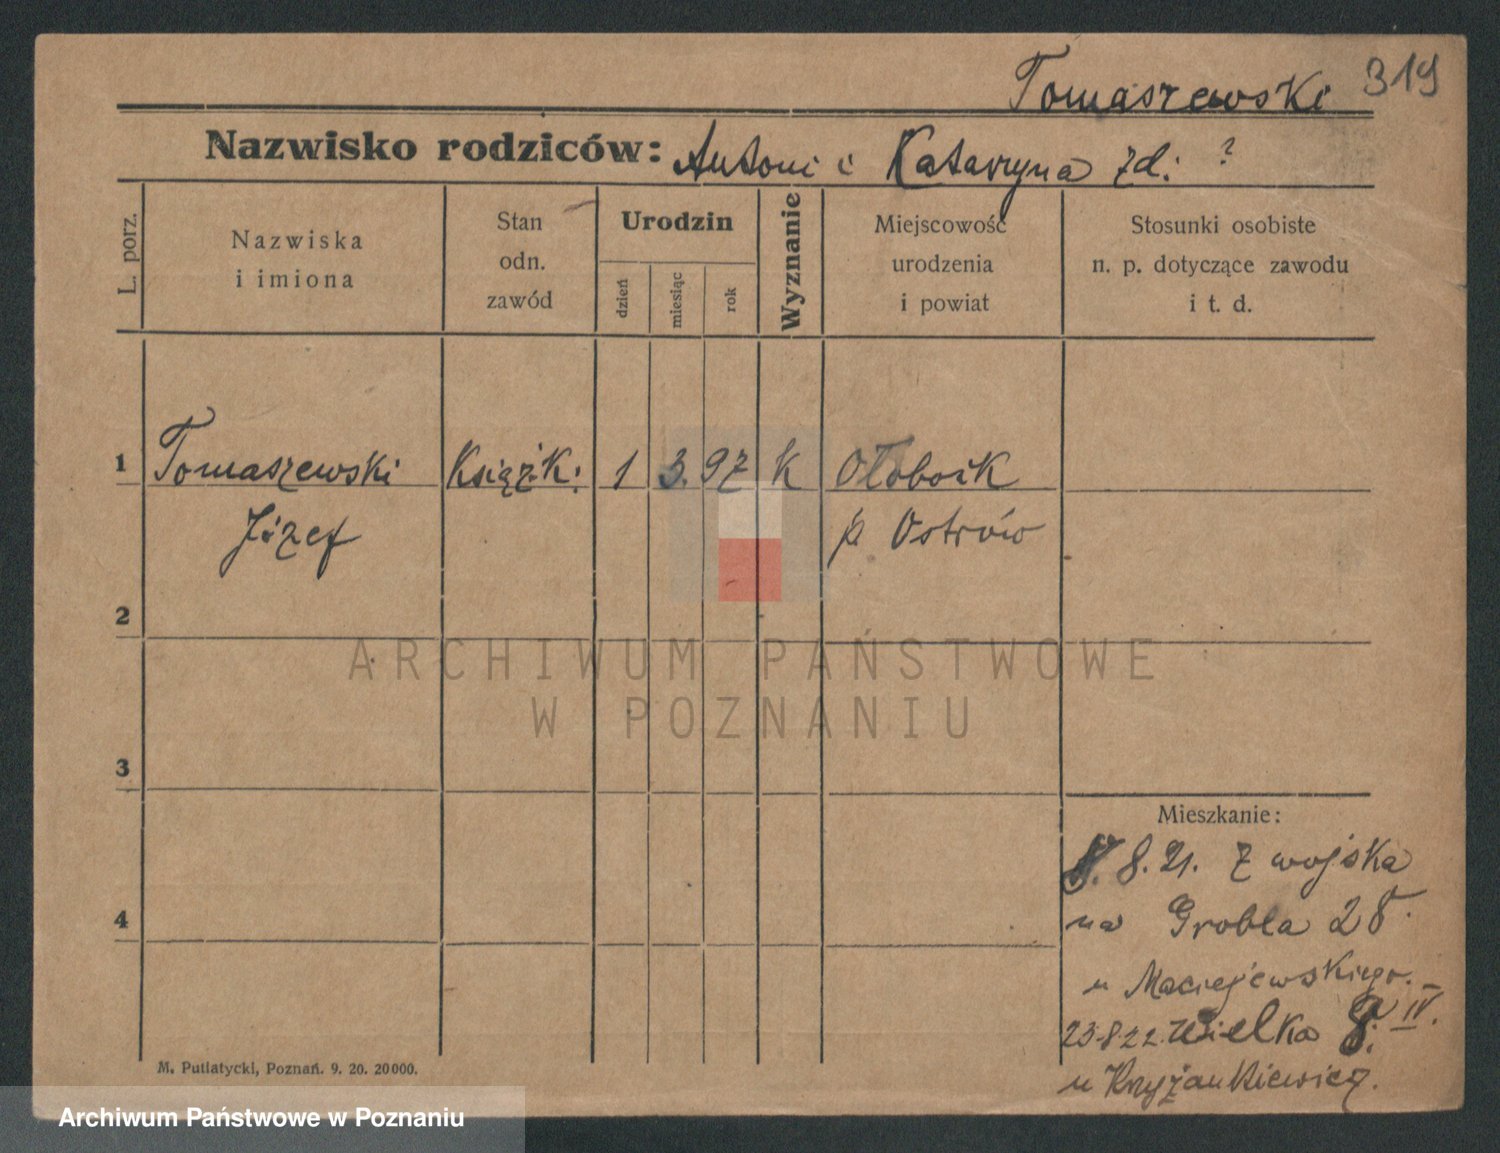 Tomaszewski 319
Nazwisko rodziców: Antoni i Katarzyna zd: ?
L. porz.
Nazwiska
i imiona
Stan
odn.
zawód
Urodzin
dzień
miesiąc
rok
Wyznanie
Miejscowość
urodzenia
i powiat
Stosunki osobiste
n. p. dotyczące zawodu
i t. d.
1 Tomaszewski Książk: 1 3. 97 k Ołobok
Józef p Ostrów
2
ARCHIWUM PAŃSTWOWE
W POZNANIU
3
Mieszkanie:
8.21. z wojska
4
na Grobla 28.
u Maciejewskiego.
23.8.22. Wielka 8. IV.
u Krzyżankiewicz.
M. Putiatycki, Poznań. 9. 20. 20000.
Archiwum Państwowe w Poznaniu